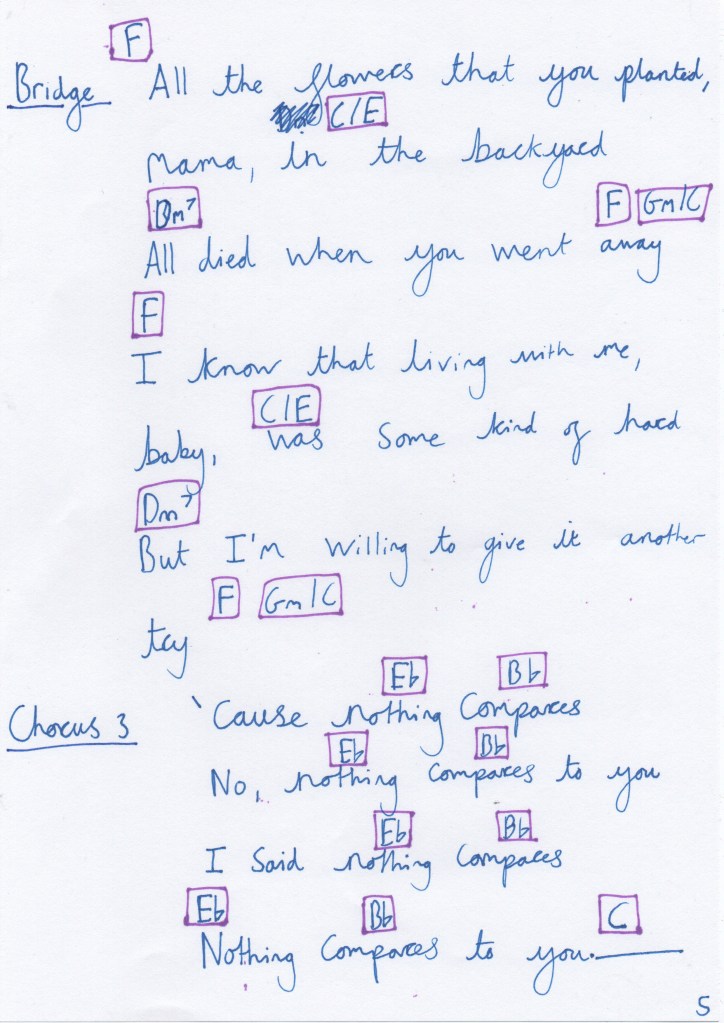 F
Bridge All the flowers that you planted,
C/E
mama, in the backyard
Dm7 F Gm/C
All died when you went away
F
I know that living with me,
C/E
baby, was some kind of hard
Dm7
But I'm willing to give it another
F Gm/C
try
Eb Bb
Chorus 3 'Cause nothing compares
Eb Bb
No, nothing compares to you
Eb Bb
I said nothing compares
Eb Bb C
Nothing compares to you.
5